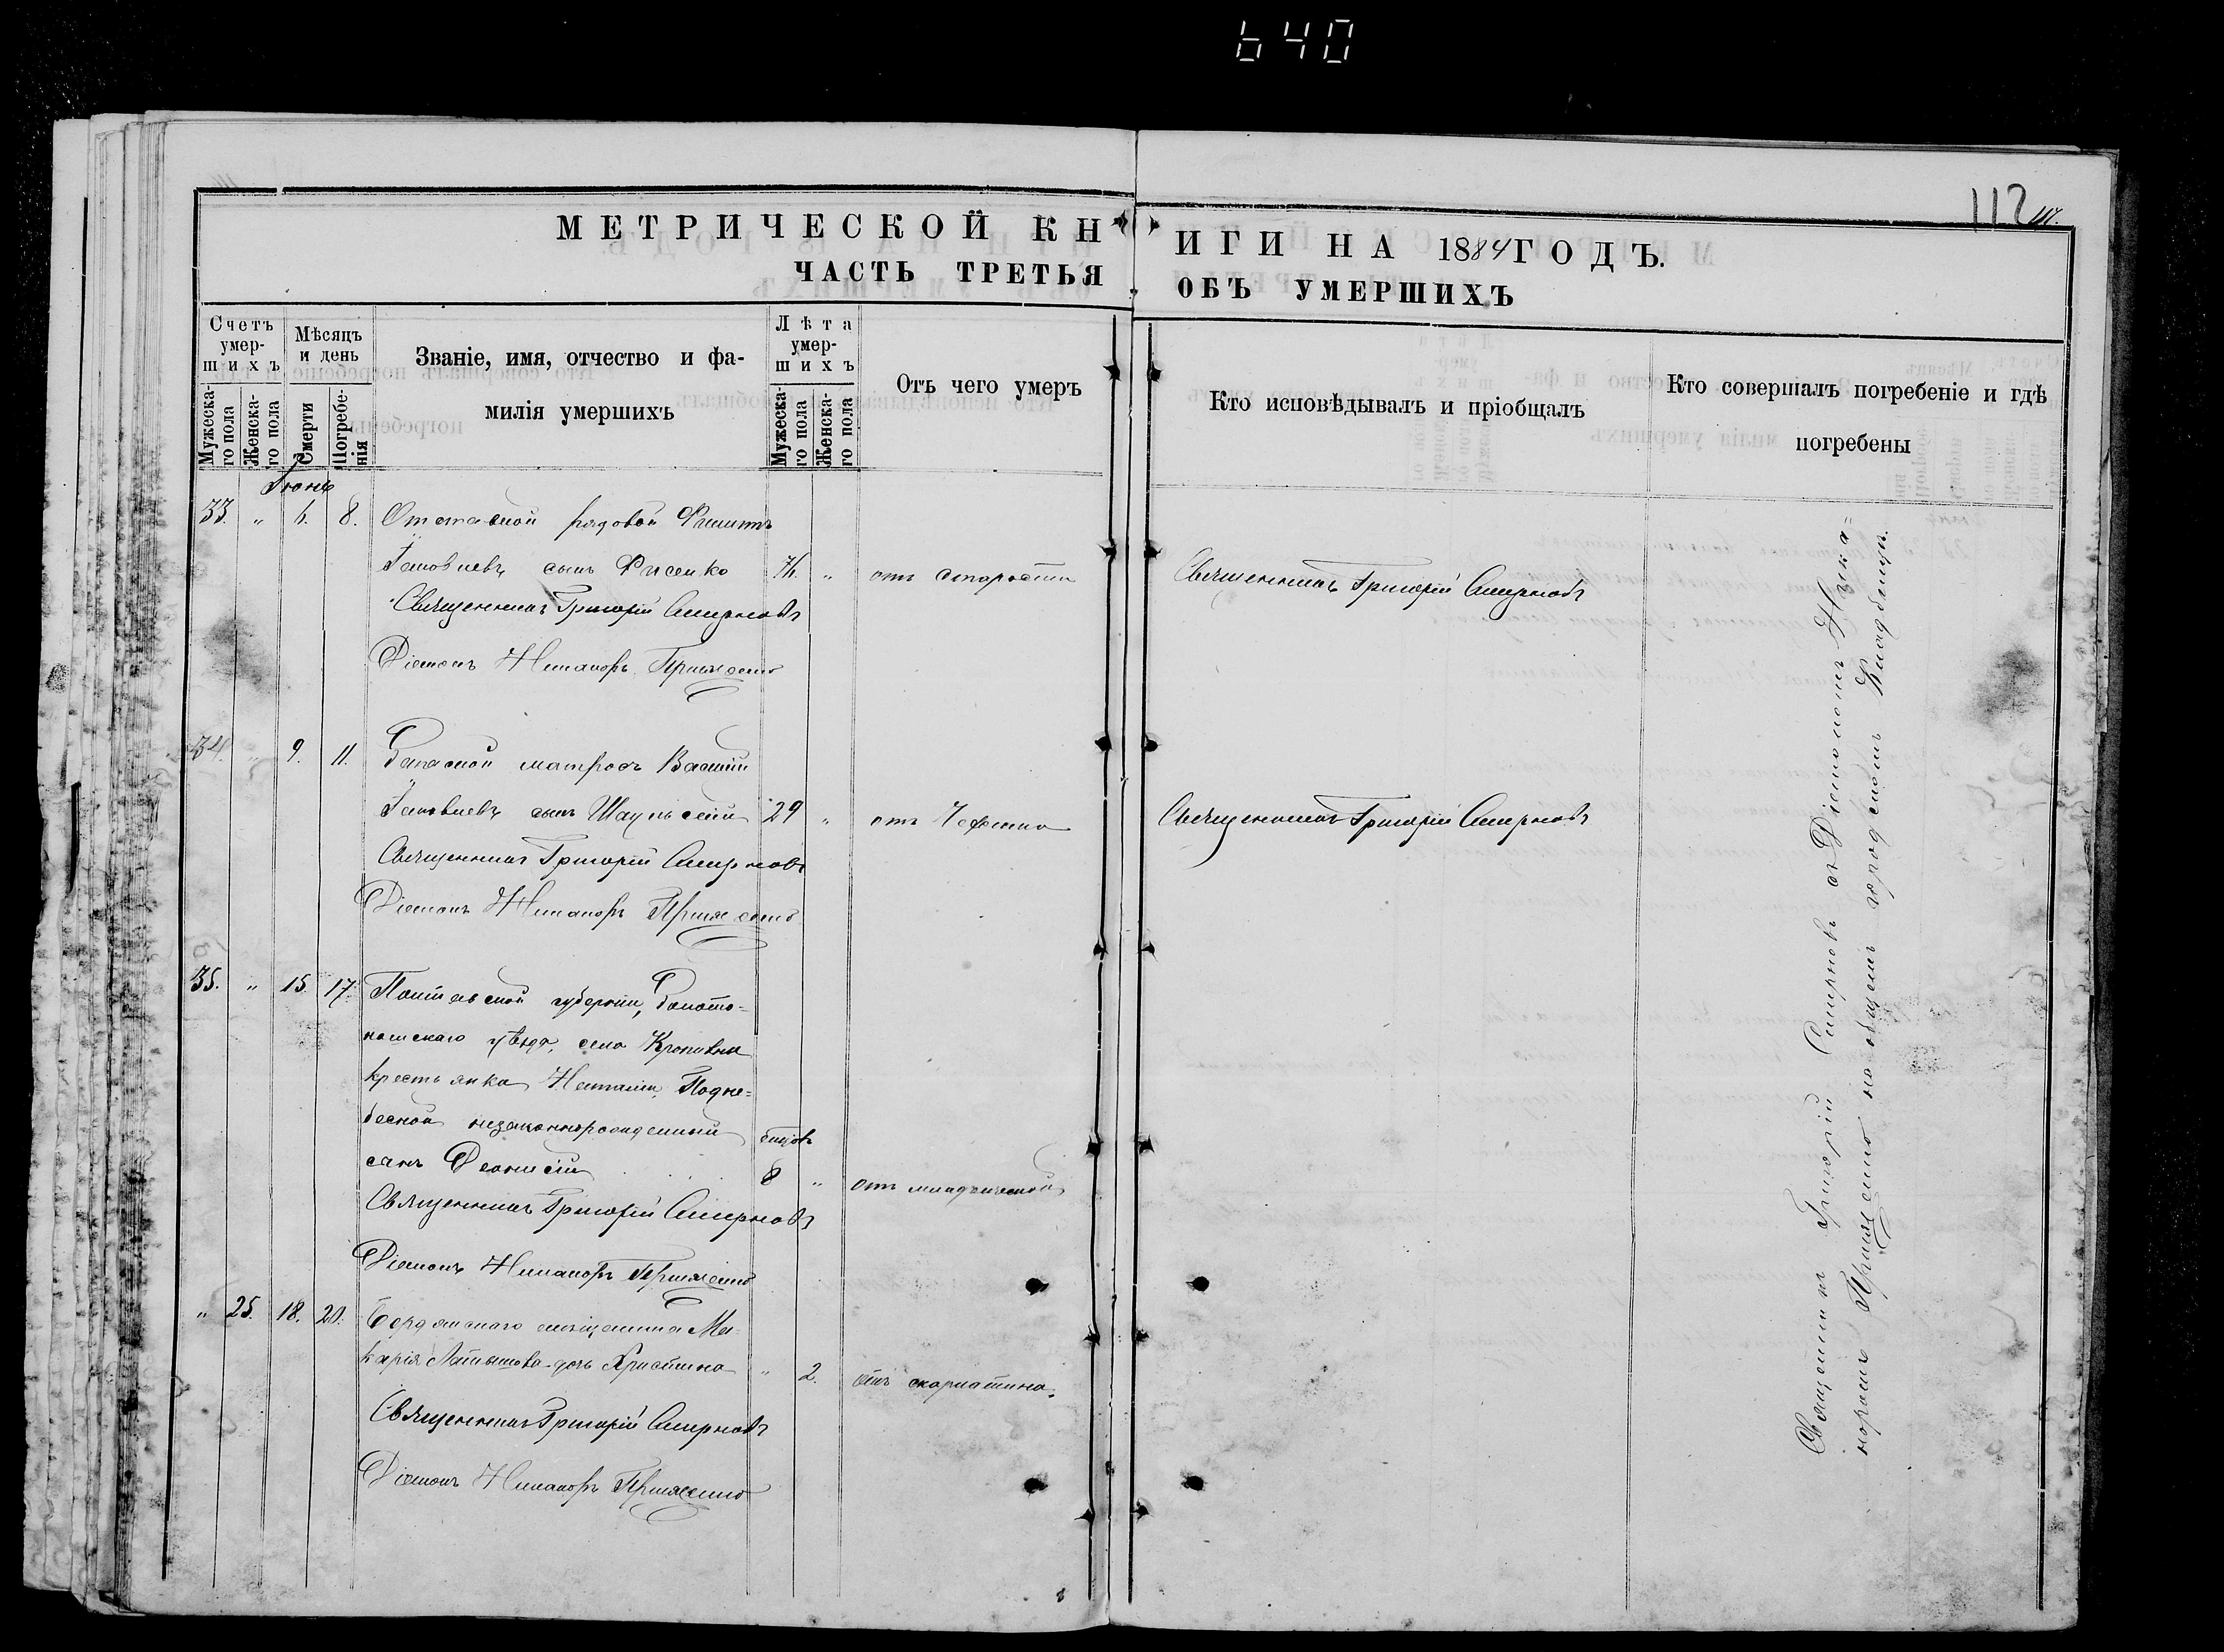 640
112
МЕТРИЧЕСКОЙ КНИГИ НА 1884 ГОДЪ.
ЧАСТЬ ТРЕТЬЯ ОБЪ УМЕРШИХЪ
Счетъ умер-
шихъ
Мужеска-
го пола
Женска-
го пола
Мѣсяцъ
и день
Смерти
Погребе-
нія
Званіе, имя, отчество и фа-
милія умершихъ
Лѣта
умер-
шихъ
Мужеска-
го пола
Женска-
го пола
Отъ чего умеръ
Кто исповѣдывалъ и пріобщалъ
Кто совершалъ погребеніе и гдѣ
погребены
Іюнь
33. " 6. 8. Отставной рядовой Филиппъ
Іаковлевъ сынъ Фисенко 76. " отъ старости Священникъ Григорій Смирновъ
Священникъ Григорій Смирновъ
Діаконъ Никаноръ
34. " 9. 11. Запасной матросъ Василій
Іаковлевъ сынъ 29 " отъ Священникъ Григорій Смирновъ
Священникъ Григорій Смирновъ
Діаконъ Никаноръ
35. " 15. 17. Полтавской губерніи, Золото-
ношскаго уѣзда, села Кропивны
крестьянка Наталіи Подне-
бесной незаконнорожденный
сынъ Деонисій 8 " отъ младенческой
Священникъ Григорій Смирновъ
Діаконъ Никаноръ
" 25. 18. 20. Бердянскаго мѣщанина Ма-
карія Латышова дочь Христина " 2. отъ скарлатины.
Священникъ Григорій Смирновъ
Діаконъ Никаноръ
Священникъ Григорій Смирновъ съ Діакономъ Ника=
норомъ на общемъ городскомъ Кладбищѣ.